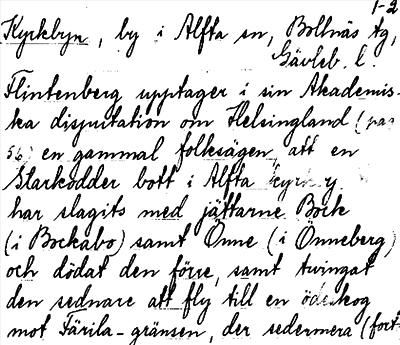 1-2
Kyrkbyn, by i Alfta sn, Bollnäs tg,
Gävleb. l.
Flintenberg upptager i sin Akademis-
ka disputation om Helsingland (pag
56) en gammal folksägen, att en
Starkodder bott i Alfta kyrkby
har slagits med jättarne Bock
(i Bockabo) samt Önne (i Önneberg)
och dödat den förre, samt tvingat
den sednare att fly till en ödeskog
mot Färila-gränsen, der sedermera (fort-